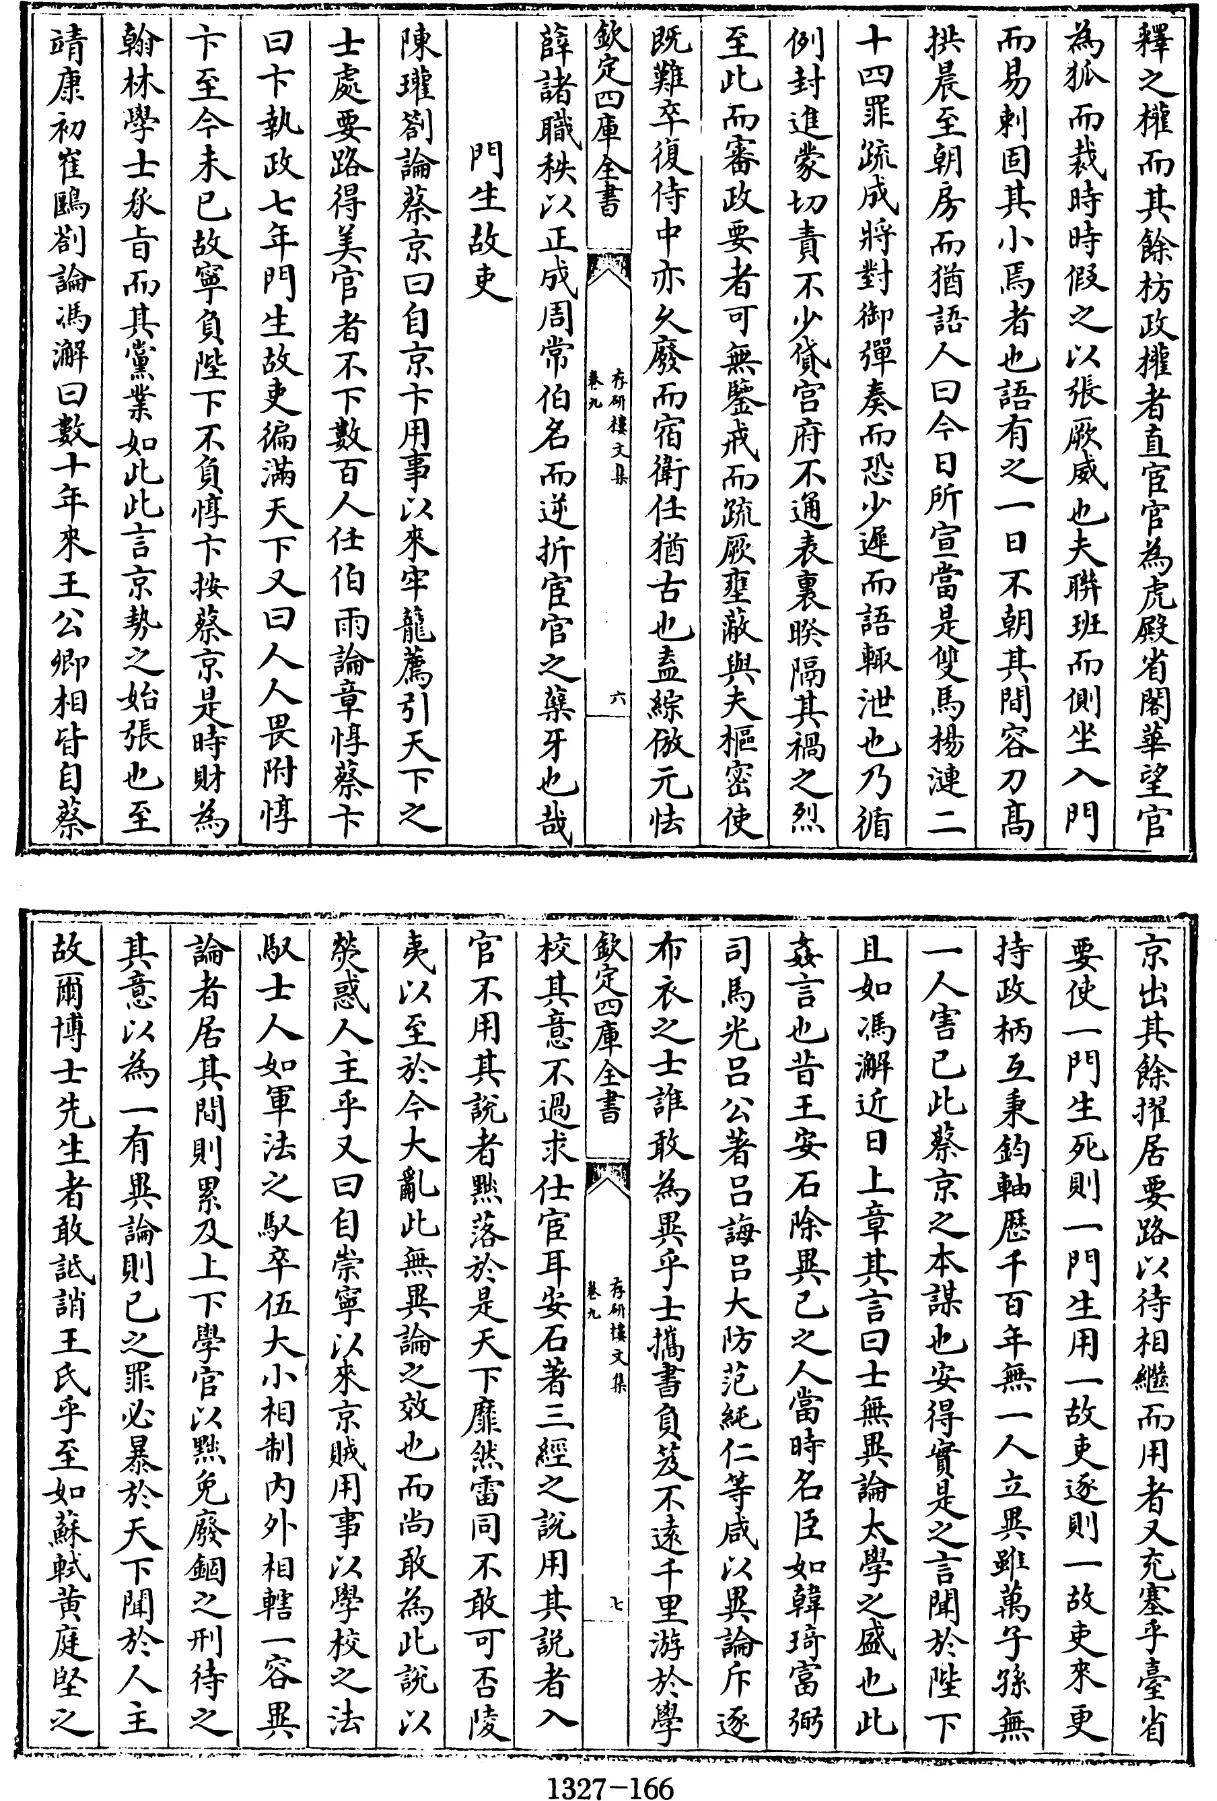 釋之權而其餘枋政權者直宦官為虎殿省閣華望官
為狐而裁時時假之以張厥威也夫聯班而側坐入門
而易刺固其小焉者也語有之一日不朝其間容刀髙
拱晨至朝房而猶語人曰今日所宣當是雙馬楊漣二
十四罪疏成將對御彈奏而恐少遲而語輒泄也乃循
例封進蒙切責不少貸宫府不通表裏暌隔其禍之烈
至此而審政要者可無鑒戒而疏厥壅蔽與夫樞密使
既難卒復侍中亦久廢而宿衛任猶古也盍綜倣元怯
薛諸職秩以正成周常伯名而逆折宦官之蘖牙也哉
門生故吏
陳瓘劄論蔡京曰自京卞用事以來牢籠薦引天下之
士處要路得美官者不下數百人任伯雨論章惇蔡卞
曰卞執政七年門生故吏徧滿天下又曰人人畏附惇
卞至今未已故寧負陛下不負惇卞按蔡京是時財為
翰林學士承㫖而其黨業如此此言京勢之始張也至
靖康初崔鷗劄論馮澥曰數十年來王公卿相皆自蔡
欽定四庫全書
存研樓文集
卷九
六
京出其餘擢居要路以待相繼而用者又充塞乎臺省
要使一門生死則一門生用一故吏逐則一故吏來更
持政柄互秉鈞軸歷千百年無一人立異雖萬子孫無
一人害已此蔡京之本謀也安得實是之言聞於陛下
且如馮澥近日上章其言曰士無異論太學之盛也此
姦言也昔王安石除異已之人當時名臣如韓琦富弼
司馬光吕公著吕誨吕大防范純仁等咸以異論斥逐
布衣之士誰敢為異乎士攜書負笈不遠千里游於學
校其意不過求仕宦耳安石著三經之說用其說者入
官不用其說者黜落於是天下靡然雷同不敢可否陵
夷以至於今大亂此無異論之效也而尚敢為此說以
熒惑人主乎又曰自崇寧以來京賊用事以學校之法
馭士人如軍法之馭卒伍大小相制内外相轄一容異
論者居其間則累及上下學官以黜免廢錮之刑待之
其意以為一有異論則已之罪必暴於天下聞於人主
故爾博士先生者敢詆誚王氏乎至如蘇軾黄庭堅之
欽定四庫全書
存研樓文集
卷九
七
1327-166